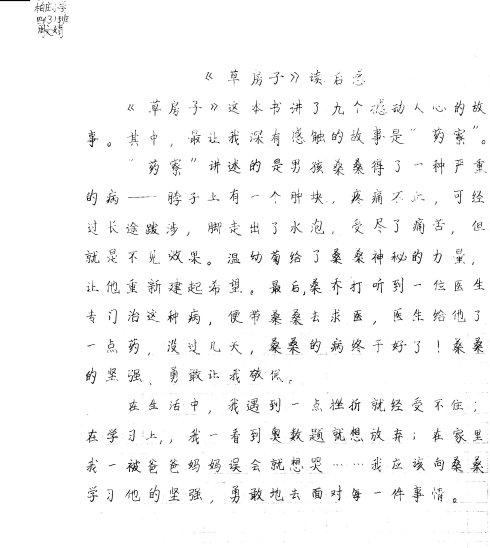 《草房子》读后感
《草房子》这本书讲了九个撼动人心的故
事。其中，最让我深有感触的故事是“药寮”。
“药寮”讲述的是男孩桑桑得了一种严重
的病——脖子上有一个肿块，疼痛不止，可经
过长途跋涉，脚走出了水泡，受尽了痛苦，但
就是不见效果。温幼菊给了桑桑神秘的力量，
让他重新建起希望。最后，桑乔打听到一位医生
专门治这种病，便带桑桑去求医，医生给他了
一点药，没过几天，桑桑的病终于好了！桑桑
的坚强、勇敢让我敬佩。
在生活中，我遇到一点挫折就经受不住；
在学习上，，我一看到奥数题就想放弃；在家里
我一被爸爸妈妈误会就想哭……我应该向桑桑
学习他的坚强，勇敢地去面对每一件事情。